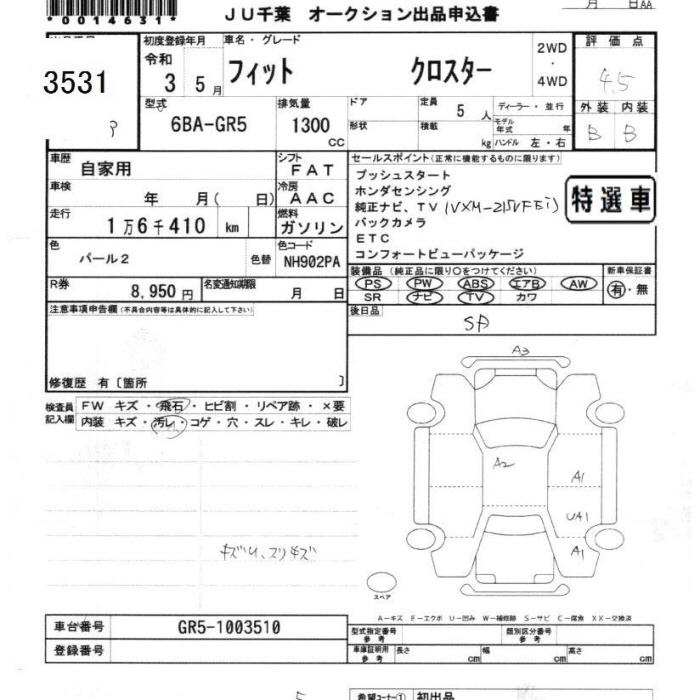 *0014631*
月 日AA
JU千葉 オークション出品申込書
3531
初度登録年月
令和
3 5月
車名・グレード
フィット クロスター
2WD
・
4WD
評価点
4.5
外装 内装
B B
型式
6BA-GR5
排気量
1300
CC
ドア
定員 5 人
形状
積載 kg
ディーラー・並行
モデル年式 年
ハンドル 左・右
車歴
自家用
シフト
FAT
車検
年 月( 日)
冷房
AAC
走行
1万6千410 km
燃料
ガソリン
色
パール2
色替
色コード
NH902PA
R券
8,950円
名変通知期限
月 日
セールスポイント(正常に機能するものに限ります)
プッシュスタート
ホンダセンシング
純正ナビ、TV(VXM-215VFEi)
バックカメラ
ETC
コンフォートビューパッケージ
特選車
装備品(純正品に限り○をつけてください)
PS PW ABS エアB AW
SR ナビ TV カワ
新車保証書
有・無
後日品
注意事項申告欄(不具合内容等は具体的に記入して下さい)
修復歴 有〔箇所 〕
検査員
記入欄
FW キズ・飛石・ヒビ割・リペア跡・×要
内装 キズ・汚レ・コゲ・穴・スレ・キレ・破レ
A3
A2
A1
UA1
A1
スペア
A-キズ E-エクボ U-凹み W-補修跡 S-サビ C-腐食 XX-交換済
車台番号 GR5-1003510
登録番号
型式指定番号
参考
類別区分番号
参考
車庫証明用
参考
長さ cm
幅 cm
高さ cm
希望コーナー① 初出品